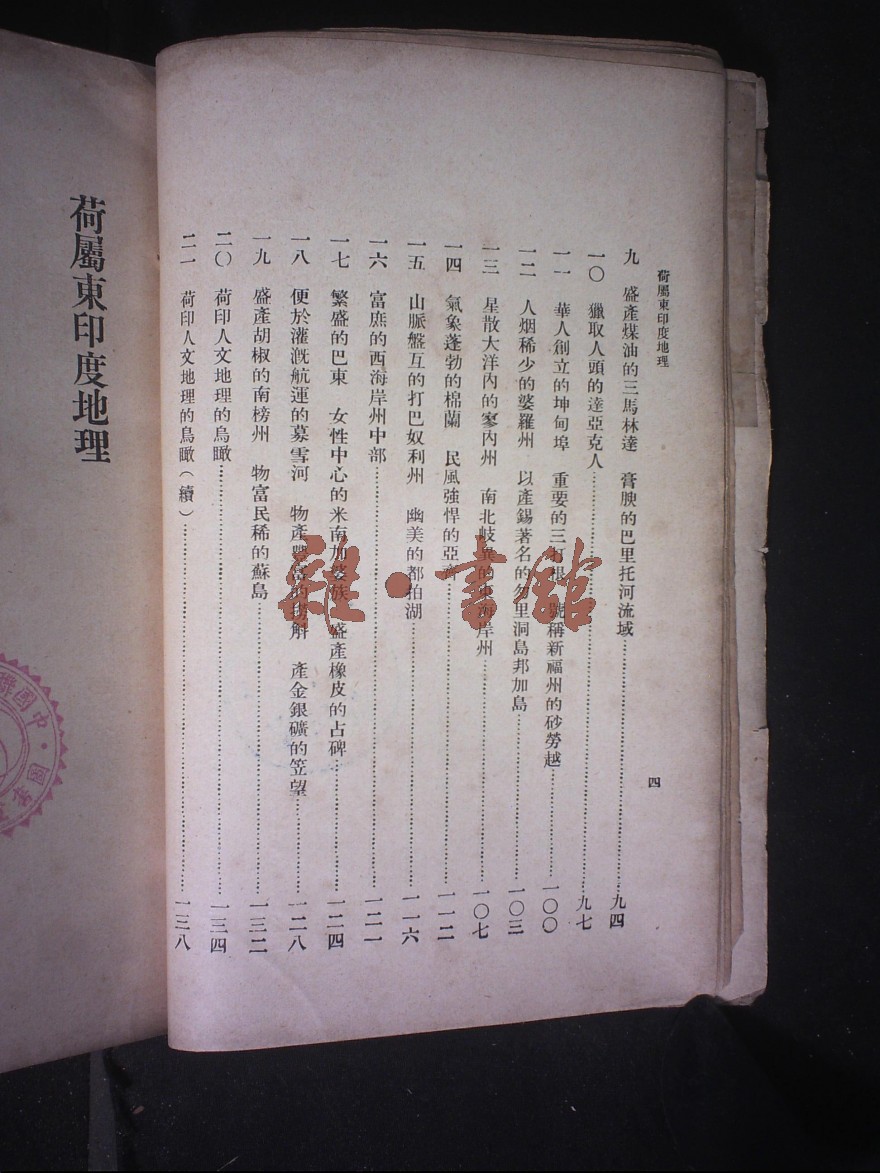 荷屬東印度地理
四
九　盛產煤油的三馬林達　膏腴的巴里托河流域……九四
一〇　獵取人頭的達亞克人……九七
一一　華人創立的坤甸埠　重要的三打根　號稱新福州的砂勞越……一〇〇
一二　人烟稀少的婆羅州　以產錫著名的勿里洞島邦加島……一〇三
一三　星散大洋內的寥內州　南北歧異的東海岸州……一〇七
一四　氣象蓬勃的棉蘭　民風強悍的亞齊……一一二
一五　山脈盤互的打巴奴利州　幽美的都拍湖……一一六
一六　富庶的西海岸州中部……一二一
一七　繁盛的巴東　女性中心的米南加婆族　盛產橡皮的占碑……一二四
一八　便於灌漑航運的慕雪河　物產豐富的　產金銀礦的笠望……一二八
一九　盛產胡椒的南榜州　物富民稀的蘇島……一三二
二〇　荷印人文地理的鳥瞰……一三四
二一　荷印人文地理的鳥瞰（續）……一三八
荷屬東印度地理
雜·書館
中國